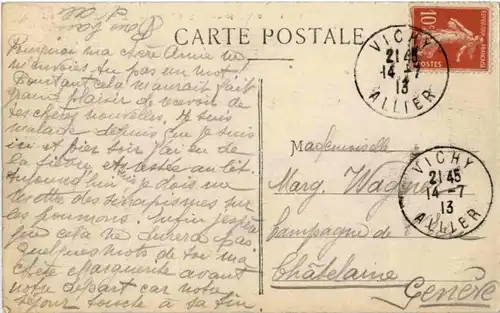 CARTE POSTALE
Pourquoi ma chère Amie ne
m'envoies tu pas un mot
Pourtant cela m'aurait fait
grand plaisir de recevoir de
tes chères nouvelles. Je suis
malade depuis que je suis
ici et hier soir j'ai eu de
la fièvre et restée au lit.
Aujourd'hui je dois me
mettre des sinapismes sur
les poumons. Enfin j'espère
que cela ne durera pas.
Quelques mots de toi ma
chère Marguerite avant
notre départ car notre
séjour touche à sa fin
10c
POSTES
VICHY
21 45
14-7
13
ALLIER
Mademoiselle
Marg. Wagner
Campagne de
Châtelaine
Genève
VICHY
21 45
14-7
13
ALLIER